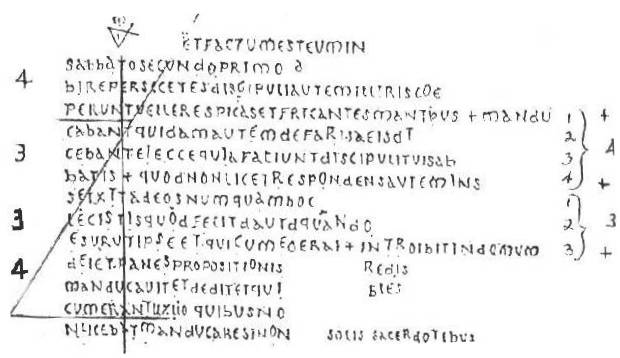 ETFACTUMESTEUMIN
SABBATOSECUNDOPRIMO A
4 BIREPERSECETESDISCIPULIAUTEMILLIRISCOE
PERUNTVELLERESPICASETFRICANTESMANTBUS + MANDU 1 +
CABANTQUIDAMAUTEMDEFARISAEISDT 2
3 CEBANTEIECCEQUIAFACIUNTDISCIPULITUISAB 3 4
BATIS + QUODNONLICETRESPONDENSAUTEMINS 4 +
SETXTTADEOSNUMQUAMHOC 1
3 LECISTISQUODFECITDAUTDQUANDO 2 3
ESURUTIPSEETQUICUMEOERAI + INTROIBITINDOMUM 3 +
4 DEIETPANESPROPOSITIONIS REDIS
MANDUCAUITETDEDITETQUI BLES
CUMERANTUXUO QUIBUSNO
NLICEBATMANDUCARESINON SOLIS SACERDOTIBUS